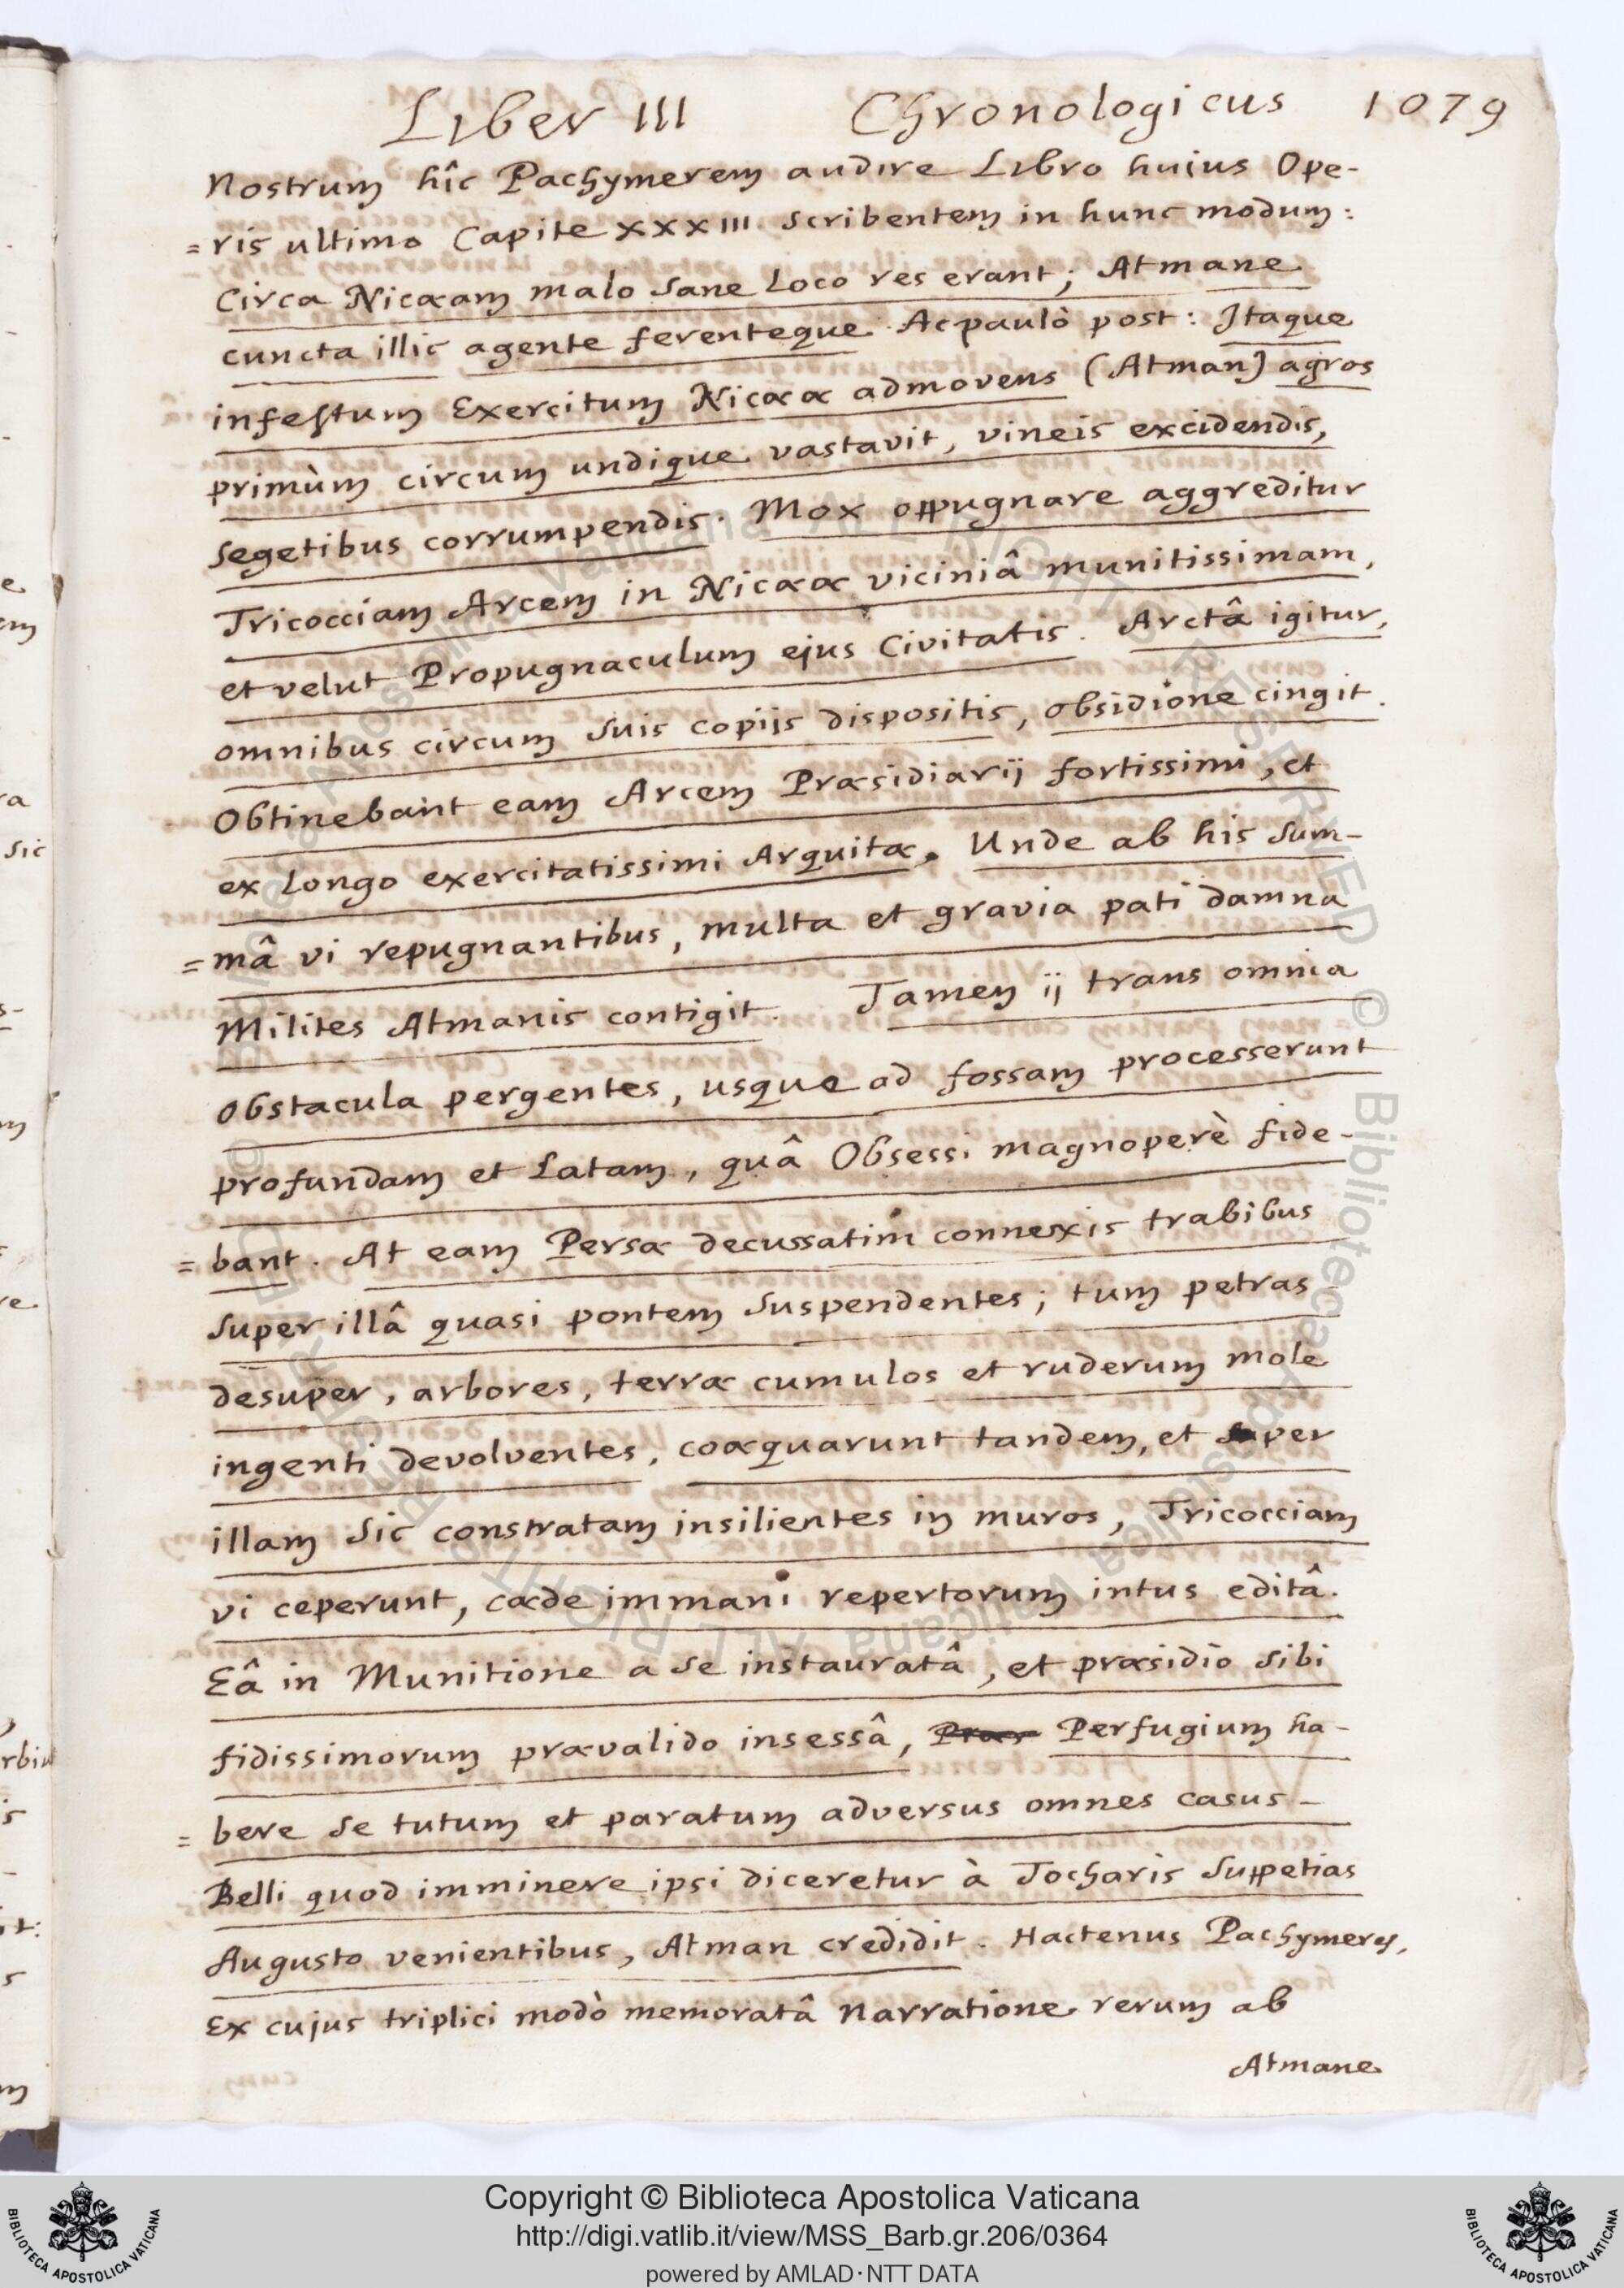 Liber III Chronologicus 1079
nostrum hîc Pachymerem audire Libro huius Ope-
=ris ultimo Capite XXXIII. scribentem in hunc modum:
Circa Nicæam malo sane loco res erant; Atmane
cuncta illic agente ferenteque. Ac paulò post: Itaque
infestum Exercitum Nicææ admovens (Atman) agros
primùm circum undique vastavit, vineis excidendis,
segetibus corrumpendis. Mox oppugnare aggreditur
Tricocciam Arcem in Nicææ viciniâ munitissimam,
et velut Propugnaculum ejus Civitatis. Arctâ igitur,
omnibus circum suis copijs dispositis, obsidione cingit.
Obtinebant eam Arcem Præsidiarij fortissimi, et
ex longo exercitatissimi Arquitæ. Unde ab his sum-
=mâ vi repugnantibus, multa et gravia pati damna
Milites Atmanis contigit. Tamen ij trans omnia
obstacula pergentes, usque ad fossam processerunt
profundam et latam, quâ Obsessi magnoperè fide-
=bant. At eam Persæ decussatim connexis trabibus
super illâ quasi pontem suspendentes; tum petras
desuper, arbores, terræ cumulos et ruderum mole
ingenti devolventes, coæquarunt tandem, et super
illam sic constratam insilientes in muros, Tricocciam
vi ceperunt, cæde immani repertorum intus editâ.
Eâ in Munitione a se instauratâ, et præsidio sibi
fidissimorum prævalido insessâ, Perfugium ha-
=bere se tutum et paratum adversus omnes casus
Belli quod imminere ipsi diceretur à Tocharis suppetias
Augusto venientibus, Atman credidit. Hactenus Pachymeres,
Ex cujus triplici modò memoratâ narratione rerum ab
Atmane
Copyright © Biblioteca Apostolica Vaticana
http://digi.vatlib.it/view/MSS_Barb.gr.206/0364
powered by AMLAD·NTT DATA